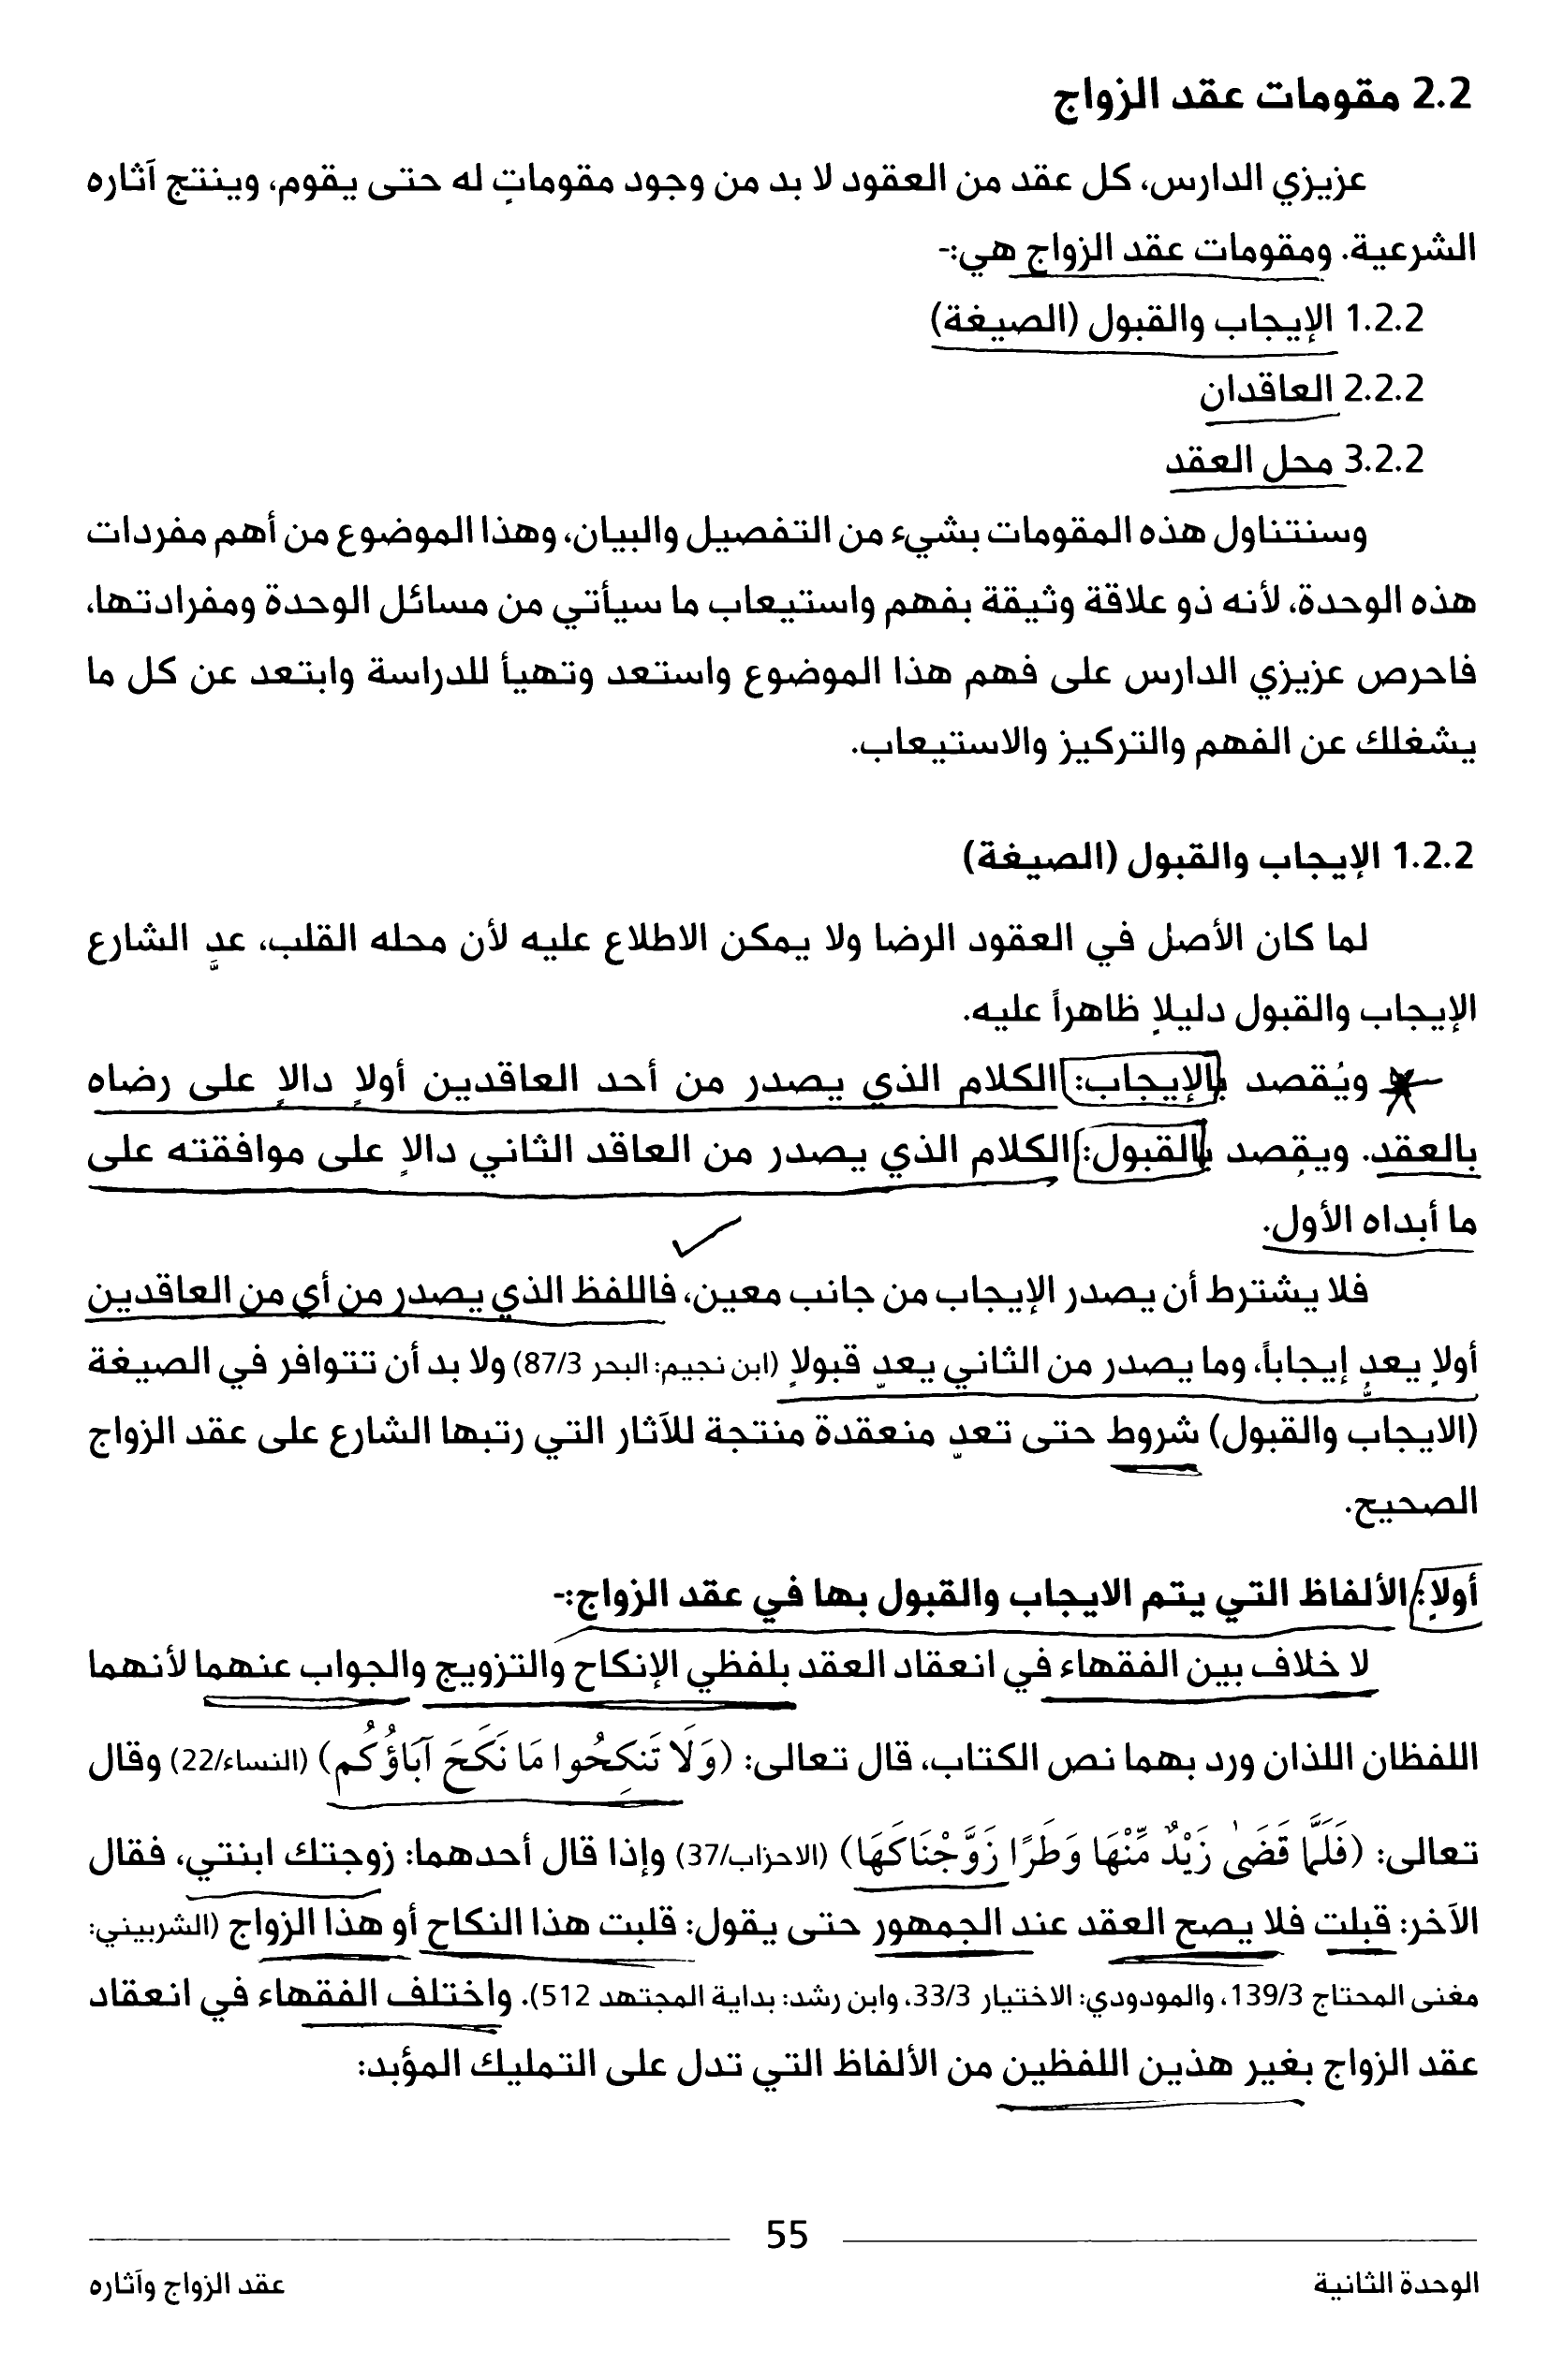 2.2 مقومات عقد الزواج
عزيزي الدارس، كل عقد من العقود لا بد من وجود مقوماتٍ له حتى يقوم، وينتج آثاره
الشرعية. ومقومات عقد الزواج هي:-
1.2.2 الإيجاب والقبول (الصيغة)
2.2.2 العاقدان
3.2.2 محل العقد
وسنتناول هذه المقومات بشيء من التفصيل والبيان، وهذا الموضوع من أهم مفردات
هذه الوحدة، لأنه ذو علاقة وثيقة بفهم واستيعاب ما سيأتي من مسائل الوحدة ومفرادتها،
فاحرص عزيزي الدارس على فهم هذا الموضوع واستعد وتهيأ للدراسة وابتعد عن كل ما
يشغلك عن الفهم والتركيز والاستيعاب.
1.2.2 الإيجاب والقبول (الصيغة)
لما كان الأصل في العقود الرضا ولا يمكن الاطلاع عليه لأن محله القلب، عدٍّ الشارع
الإيجاب والقبول دليلاٍ ظاهراً عليه.
ويُقصد بالإيجاب: الكلام الذي يصدر من أحد العاقدين أولاٍ دالاٍ على رضاه
بالعقد. ويقصد بالقبول: الكلام الذي يصدر من العاقد الثاني دالاٍ على موافقته على
ما أبداه الأول.
فلا يشترط أن يصدر الإيجاب من جانب معين، فاللفظ الذي يصدر من أي من العاقدين
أولاٍ يعدٍّ إيجاباً، وما يصدر من الثاني يعدٍّ قبولاٍ (ابن نجيم: البحر 87/3) ولا بد أن تتوافر في الصيغة
(الايجاب والقبول) شروط حتى تعدٍّ منعقدة منتجة للآثار التي رتبها الشارع على عقد الزواج
الصحيح.
أولاٍ: الألفاظ التي يتم الايجاب والقبول بها في عقد الزواج:-
لا خلاف بين الفقهاء في انعقاد العقد بلفظي الإنكاح والتزويج والجواب عنهما لأنهما
اللفظان اللذان ورد بهما نص الكتاب، قال تعالى: (وَلَا تَنكِحُوا مَا نَكَحَ آبَاؤُكُم) (النساء/22) وقال
تعالى: (فَلَمَّا قَضَىٰ زَيْدٌ مِّنْهَا وَطَرًا زَوَّجْنَاكَهَا) (الاحزاب/37) وإذا قال أحدهما: زوجتك ابنتي، فقال
الآخر: قبلت فلا يصح العقد عند الجمهور حتى يقول: قلبت هذا النكاح أو هذا الزواج (الشربيني:
مغنى المحتاج 139/3، والمودودي: الاختيار 33/3، وابن رشد: بداية المجتهد 512). واختلف الفقهاء في انعقاد
عقد الزواج بغير هذين اللفظين من الألفاظ التي تدل على التمليك المؤبد:
55
الوحدة الثانية
عقد الزواج وآثاره